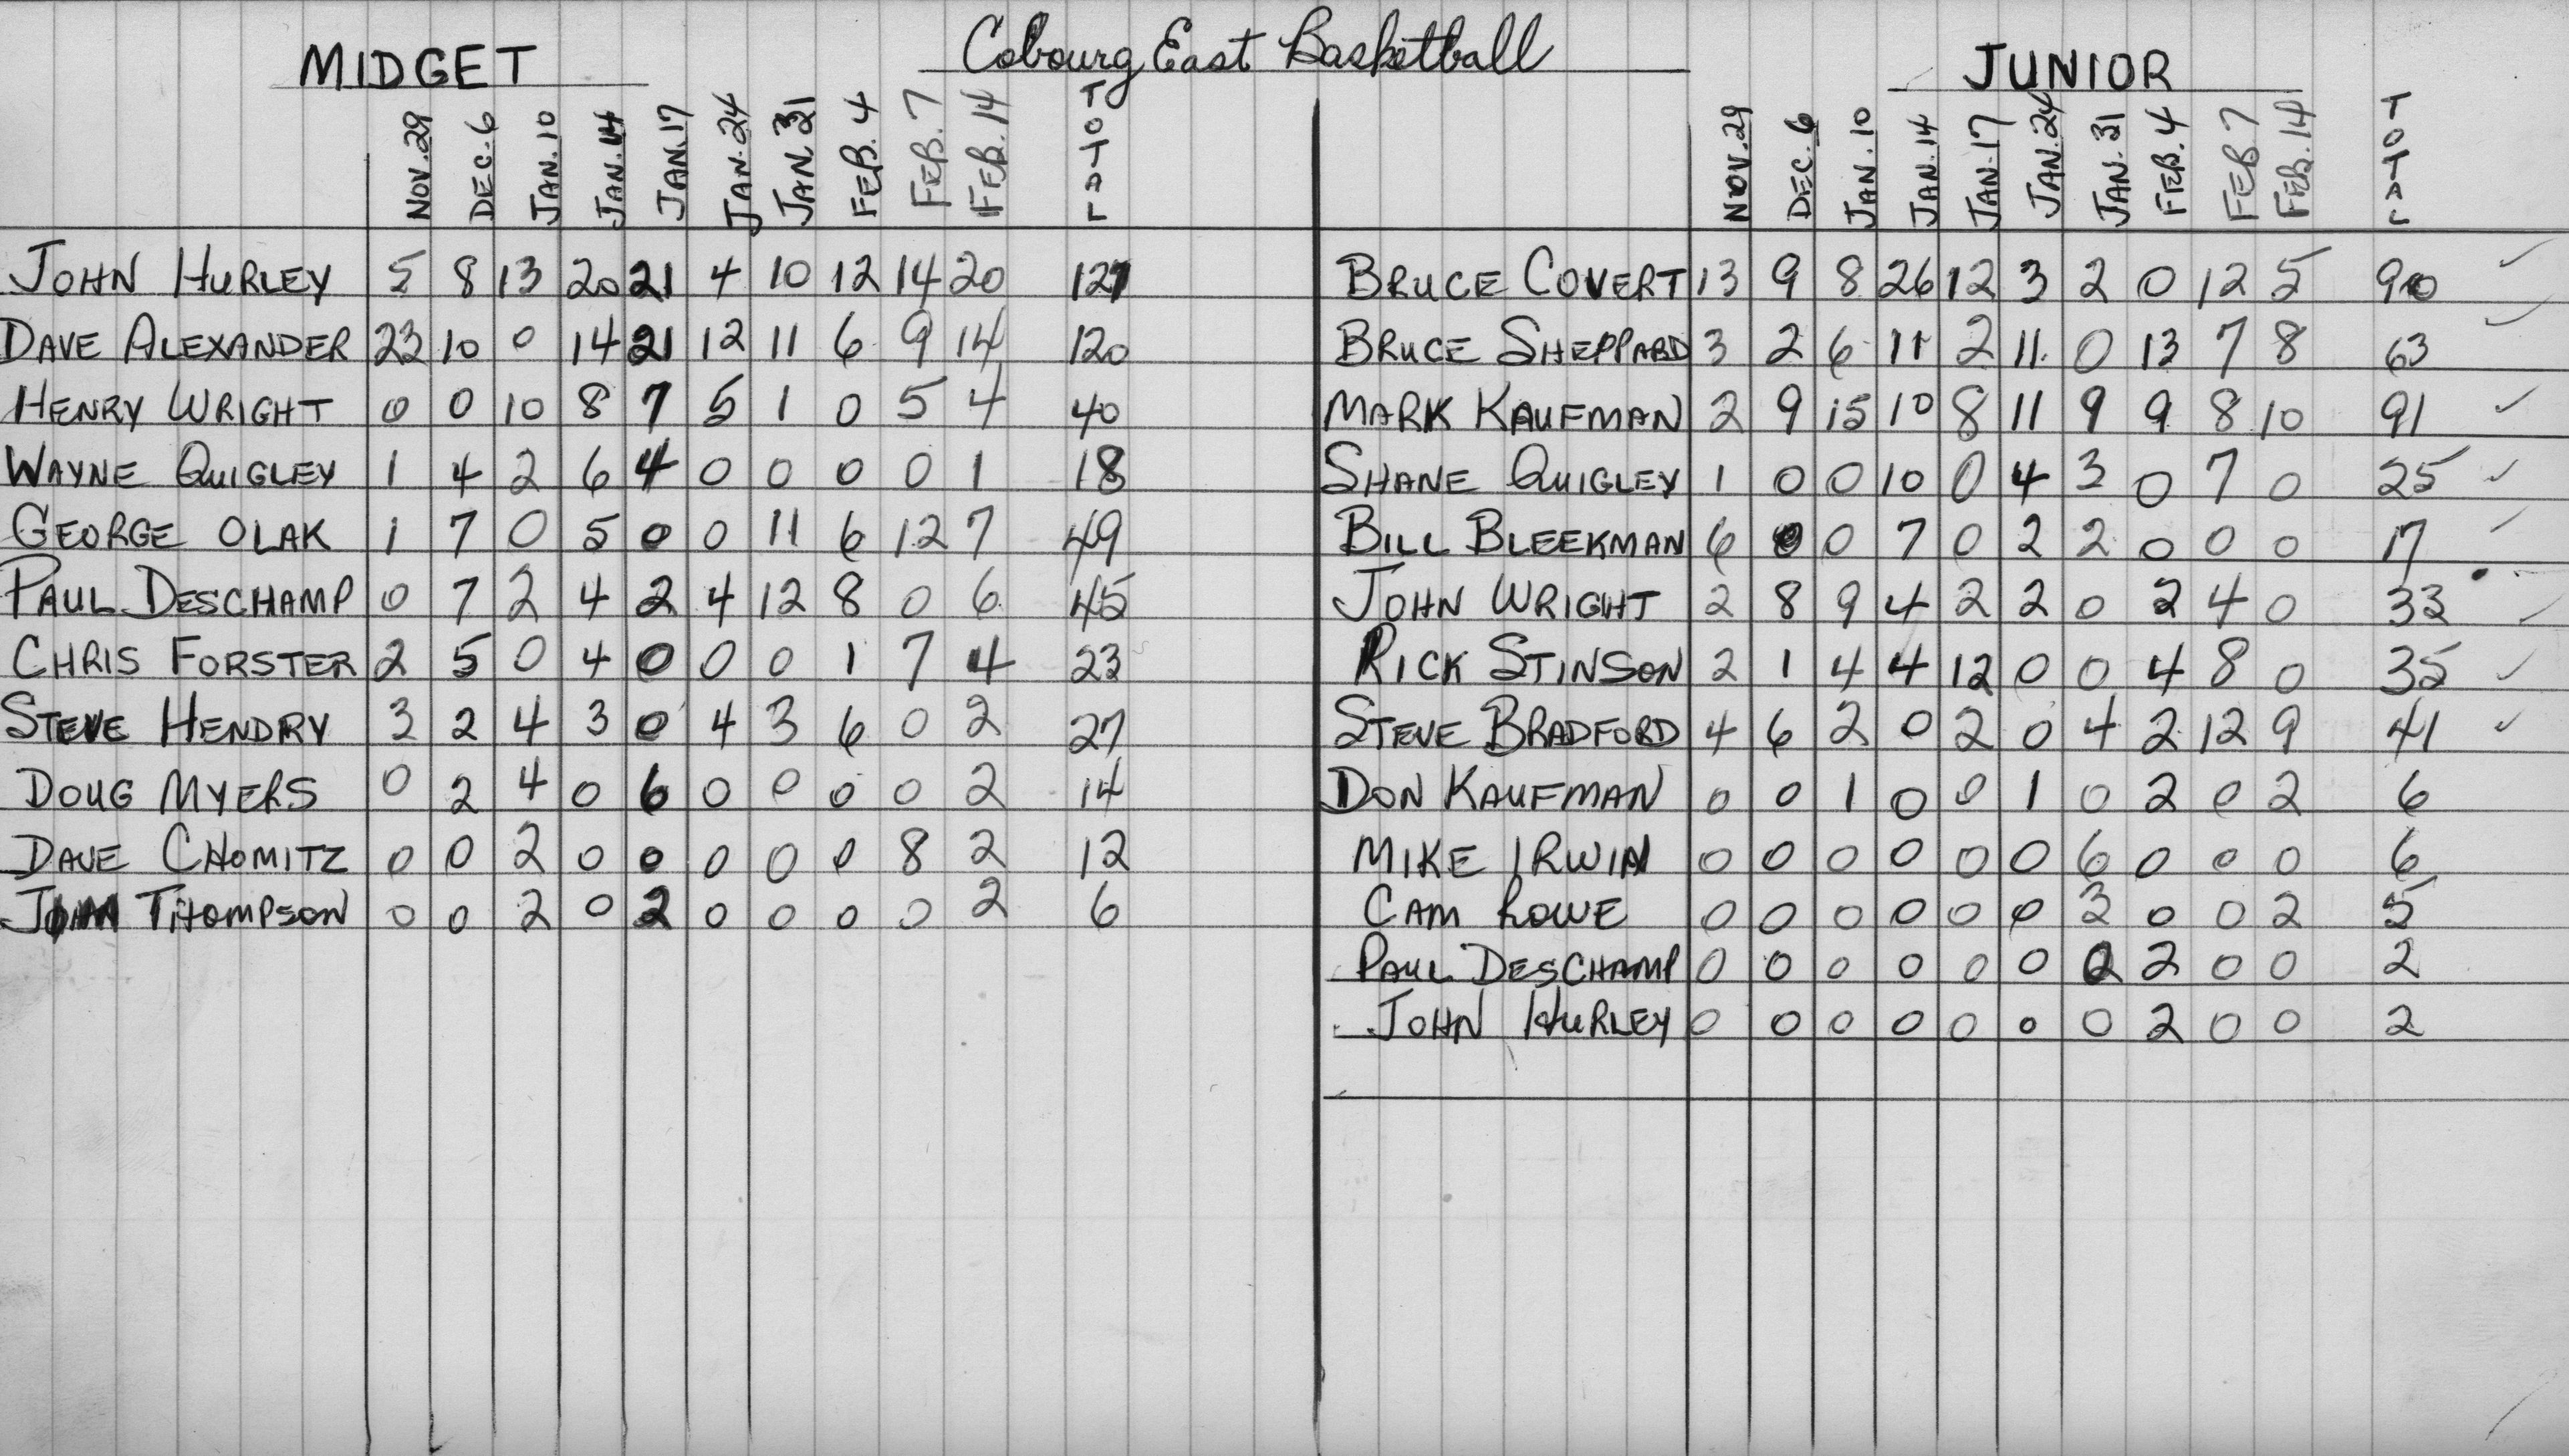 Cobourg East Basketball
MIDGET
NOV. 29 DEC. 6 JAN. 10 JAN. 14 JAN. 17 JAN. 24 JAN. 31 FEB. 4 FEB. 7 FEB. 14 TOTAL
JOHN HURLEY 5 8 13 20 21 4 10 12 14 20 127
DAVE ALEXANDER 23 10 0 14 21 12 11 6 9 14 120
HENRY WRIGHT 0 0 10 8 7 5 1 0 5 4 40
WAYNE QUIGLEY 1 4 2 6 4 0 0 0 0 1 18
GEORGE OLAK 1 7 0 5 0 0 11 6 12 7 49
PAUL DESCHAMP 0 7 2 4 2 4 12 8 0 6 45
CHRIS FORSTER 2 5 0 4 0 0 0 1 7 4 23
STEVE HENDRY 3 2 4 3 0 4 3 6 0 2 27
DOUG MYERS 0 2 4 0 6 0 0 0 0 2 14
DAVE CHOMITZ 0 0 2 0 0 0 0 0 8 2 12
THOMPSON 0 0 2 0 2 0 0 0 0 2 6
JUNIOR
NOV. 29 DEC. 6 JAN. 10 JAN. 14 JAN. 17 JAN. 24 JAN. 31 FEB. 4 FEB. 7 FEB. 14 TOTAL
BRUCE COVERT 13 9 8 26 12 3 2 0 12 5 90 ✓
BRUCE SHEPPARD 3 2 6 11 2 11 0 13 7 8 63 ✓
MARK KAUFMAN 2 9 15 10 8 11 9 9 8 10 91 ✓
SHANE QUIGLEY 1 0 0 10 0 4 3 0 7 0 25 ✓
BILL BLEEKMAN 6 0 0 7 0 2 2 0 0 0 17 ✓
JOHN WRIGHT 2 8 9 4 2 2 0 2 4 0 33 ✓
RICK STINSON 2 1 4 4 12 0 0 4 8 0 35 ✓
STEVE BRADFORD 4 6 2 0 2 0 4 2 12 9 41 ✓
DON KAUFMAN 0 0 1 0 0 1 0 2 0 2 6
MIKE IRWIN 0 0 0 0 0 0 6 0 0 0 6
CAM ROWE 0 0 0 0 0 0 3 0 0 2 5
PAUL DESCHAMP 0 0 0 0 0 0 0 2 0 0 2
JOHN HURLEY 0 0 0 0 0 0 0 2 0 0 2